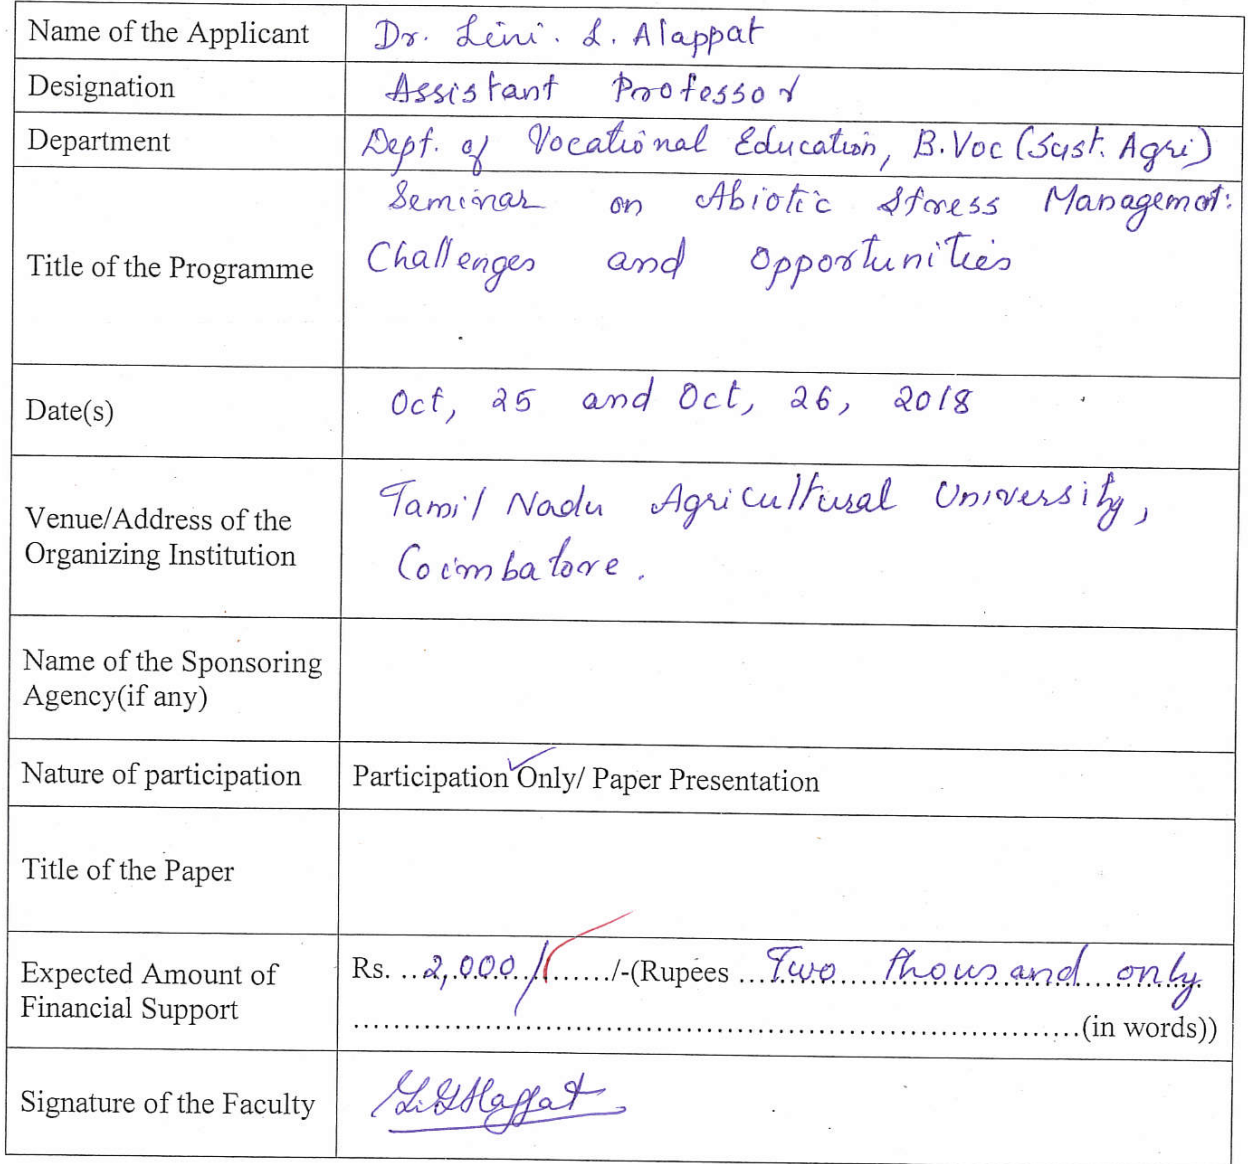 Name of the Applicant Dr. Lini. L. Alappat
Designation Assistant Professor
Department Dept. of Vocational Education, B.Voc (Sust. Agri)
Title of the Programme Seminar on Abiotic Stress Managemet:
Challenges and Opportunities
Date(s) Oct, 25 and Oct, 26, 2018
Venue/Address of the
Organizing Institution
Tamil Nadu Agricultural University,
Coimbatore.
Name of the Sponsoring
Agency(if any)
Nature of participation Participation Only/ Paper Presentation
Title of the Paper
Expected Amount of
Financial Support
Rs. ...2,000/......./-(Rupees ...Two thousand only
....................................................................(in words))
Signature of the Faculty